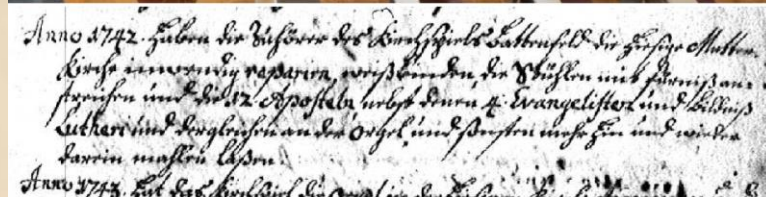 Anno 1742. haben die Zuhörer des Kirchspiels Battenfeld die hiesige Mutter
Kirche inwendig reparien, weißbinden die Stühlen mit Fürniß an
streichen und die 12. Aposteln, nebst denen 4. Evangelisten und Bildniß
Lutheri und dergleichen an der Orgel und sonsten mehr hin und wieder
darein mahlen laßen
Anno 1743. hat das Kirchspiel die Orgel in der